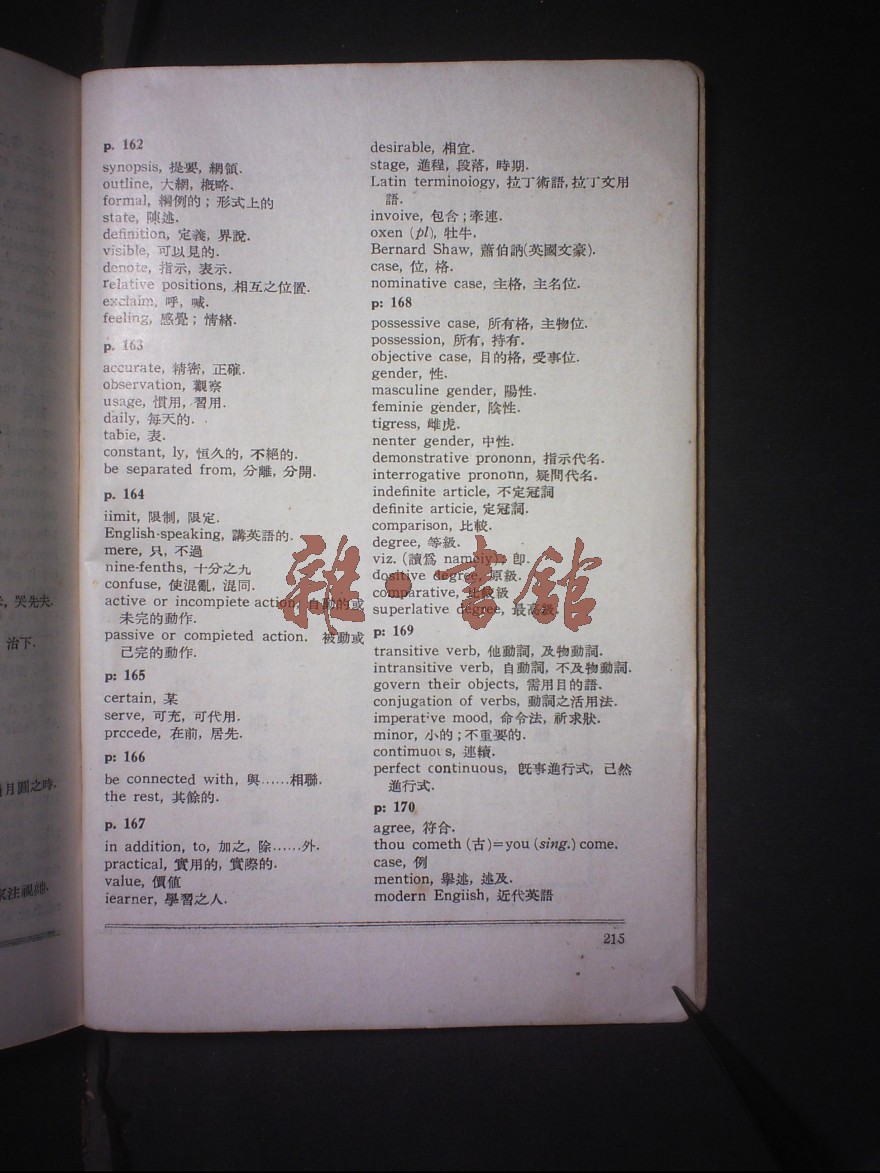 p. 162
synopsis, 提要, 綱領.
outline, 大綱, 概略.
formal, 綱例的；形式上的
state, 陳述.
definition, 定義, 界說.
visible, 可以見的.
denote, 指示, 表示.
relative positions, 相互之位置.
exclaim, 呼, 喊.
feeling, 感覺；情緒.
p. 163
accurate, 精密, 正確.
observation, 觀察
usage, 慣用, 習用.
daily, 每天的.
tabie, 表.
constant, ly, 恒久的, 不絕的.
be separated from, 分離, 分開.
p. 164
iimit, 限制, 限定.
English-speaking, 講英語的.
mere, 只, 不過
nine-fenths, 十分之九
confuse, 使混亂, 混同.
active or incompiete action, 自動的或
未完的動作.
passive or compieted action. 被動或
已完的動作.
p: 165
certain, 某
serve, 可充, 可代用.
prccede, 在前, 居先.
p: 166
be connected with, 與……相聯.
the rest, 其餘的.
p. 167
in addition, to, 加之, 除……外.
practical, 實用的, 實際的.
value, 價値
iearner, 學習之人.
desirable, 相宜.
stage, 進程, 段落, 時期.
Latin terminoiogy, 拉丁術語, 拉丁文用
語.
invoive, 包含；牽連.
oxen (pl), 牡牛.
Bernard Shaw, 蕭伯訥(英國文豪).
case, 位, 格.
nominative case, 主格, 主名位.
p: 168
possessive case, 所有格, 主物位.
possession, 所有, 持有.
objective case, 目的格, 受事位.
gender, 性.
masculine gender, 陽性.
feminie gender, 陰性.
tigress, 雌虎.
nenter gender, 中性.
demonstrative prononn, 指示代名.
interrogative prononn, 疑問代名.
indefinite article, 不定冠詞
definite articie, 定冠詞.
comparison, 比較.
degree, 等級.
viz. (讀爲 nameiy)：卽.
dositive degree, 原級.
comparative, 比較級
superlative degree, 最高級.
p: 169
transitive verb, 他動詞, 及物動詞.
intransitive verb, 自動詞, 不及物動詞.
govern their objects, 需用目的語.
conjugation of verbs, 動詞之活用法.
imperative mood, 命令法, 祈求狀.
minor, 小的；不重要的.
contimuous, 連續.
perfect continuous, 旣事進行式, 已然
進行式.
p: 170
agree, 符合.
thou cometh (古)=you (sing.) come.
case, 例
mention, 舉述, 述及.
modern Engiish, 近代英語
215
哭先夫.
治下.
月圓之時.
雜·書館